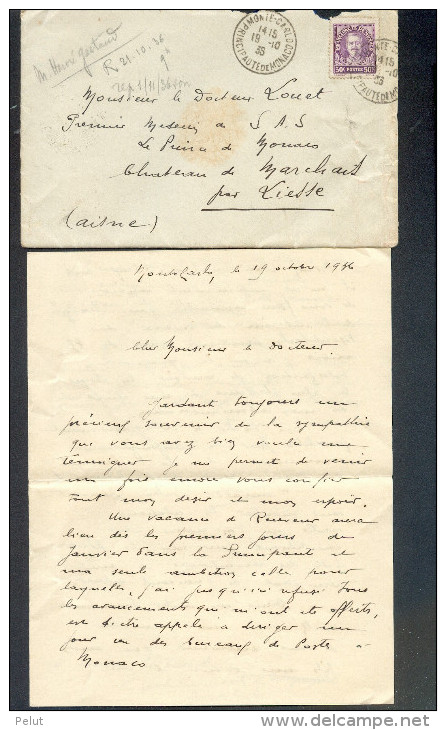 M. Hervé
R 21.10.36
rep. 1/11/36
MONTE-CARLO
14 15
19 -10
36
PRINCIPAUTÉ DE MONACO
50c POSTES 50c
Monsieur le Docteur Louet
Premier Medecin de S.A.S
Le Prince de Monaco
Chateau de Marchais
par Liesse
(aisne)
Monte Carlo, le 19 octobre 1936
Cher Monsieur le docteur.
Gardant toujours un
précieux souvenir de la sympathie
que vous avez bien voulu me
témoigner je me permet de venir
une fois encore vous confier
tout mon désir et mon espoir.
Une vacance de Receveur aura
lieu dès les premiers jours de
Janvier dans la Principauté et
ma seule ambition celle pour
laquelle, j'ai jusqu'ici refusé tous
les avancements qui m'ont été offerts,
est d'être appelé à diriger un
jour un des bureaux de Poste à
Monaco
Pelut
www.delcampe.net